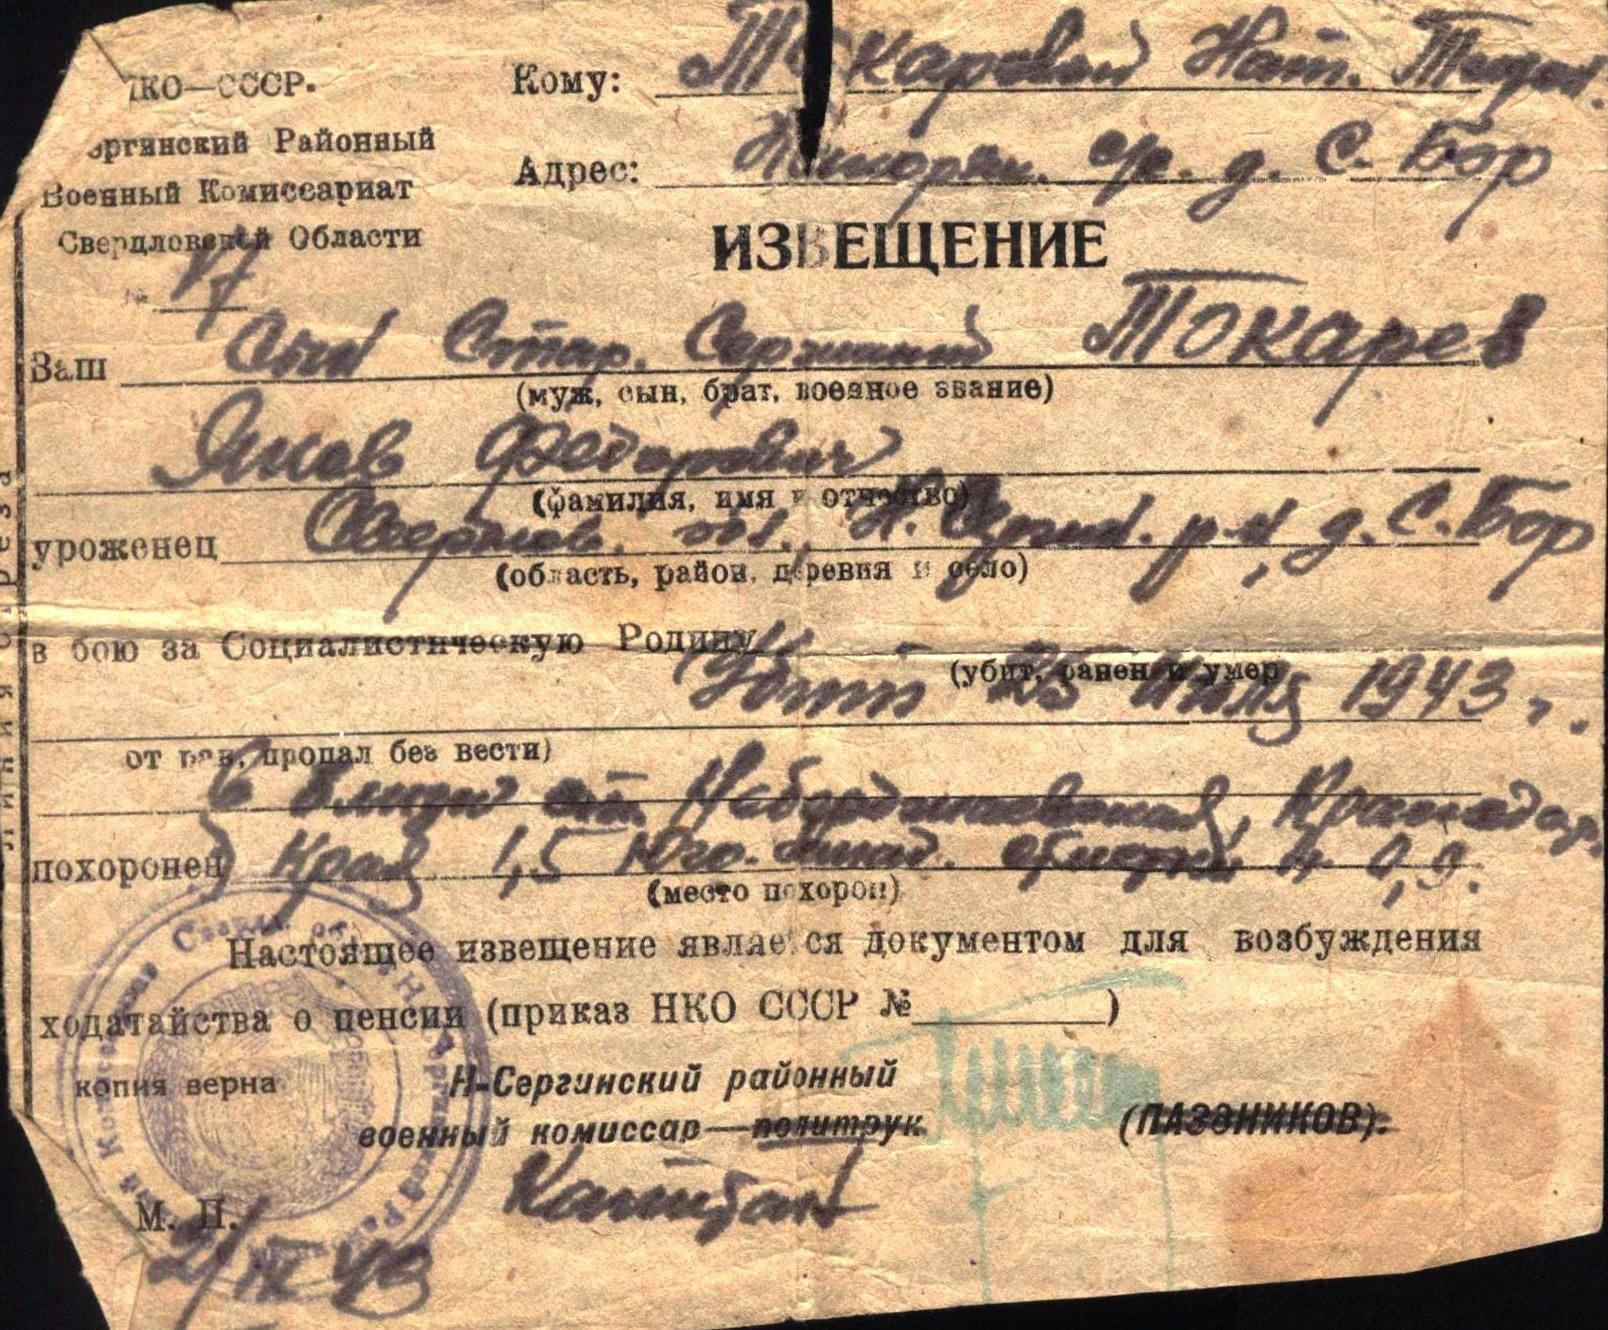 НКО—СССР.
Сергинский Районный
Военный Комиссариат
Свердловской Области
№ 17
Кому: Токаревой Нат. 
Адрес: с/с. д. С. Бор
ИЗВЕЩЕНИЕ
Ваш сын Стар. Сержант Токарев
(муж, сын, брат, военное звание)
Яков Федорович
(фамилия, имя и отчество)
уроженец Свердлов. обл., Н. Сергин. р-н, д. С. Бор
(область, район, деревня и село)
в бою за Социалистическую Родину
(убит, ранен и умер
Убит 25 июля 1943 г.
от ран, пропал без вести)
ст. Небержджаевская, Краснодар.
похоронен Края 1,5 Юго. запад. отметки
(место похорон)
Настоящее извещение является документом для возбуждения
ходатайства о пенсии (приказ НКО СССР № )
копия верна
Н-Сергинский районный
военный комиссар—политрук (ПАЗНИКОВ).
Капитан
М. П.
2/IX 43
линия отреза